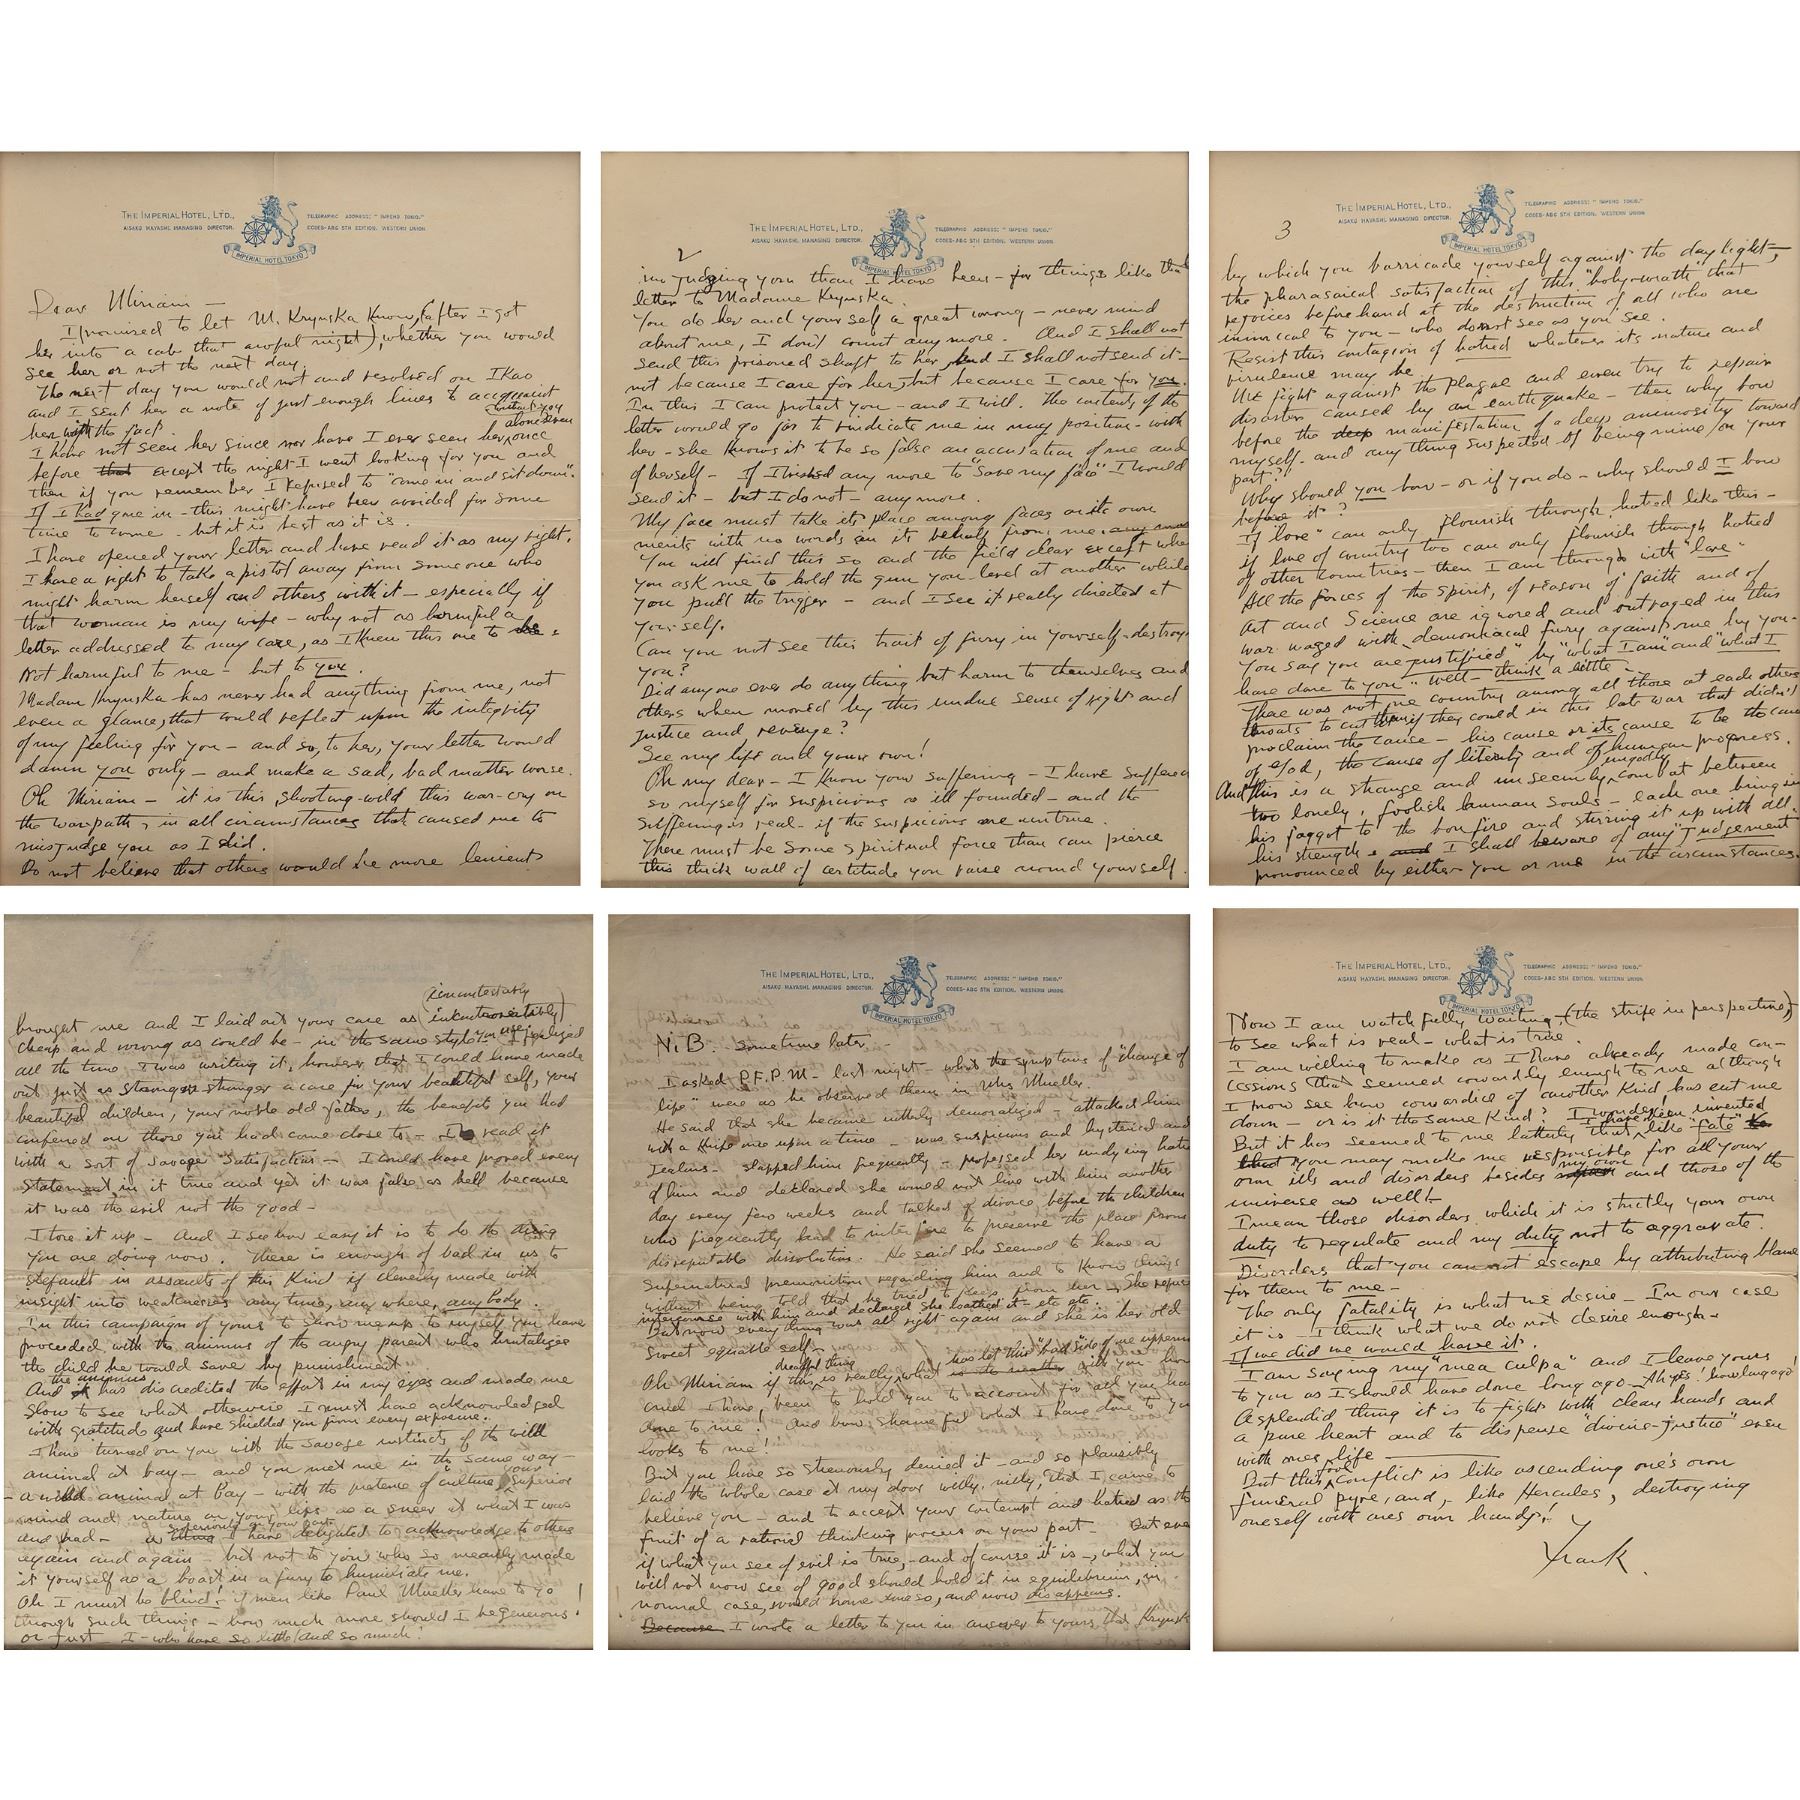 THE IMPERIAL HOTEL, LTD.,
AISAKU HAYASHI, MANAGING DIRECTOR.
TELEGRAPHIC ADDRESS: "IMPEHO TOKIO."
CODES-ABC 5TH EDITION, WESTERN UNION
IMPERIAL HOTEL TOKYO
Dear Miriam —
I promised to let M. Krynska know, (after I got
her into a cab that awful night), whether you would
see her or not the next day.
The next day you would not and resolved on Ikao
and I sent her a note of just enough lines to acquaint
her with the fact.
without you
alone even
I have not seen her since nor have I ever seen her once
before that except the night I went looking for you and
then if you remember I refused to "come in and sit down".
If I had gone in - this might have been avoided for some
time to come - but it is best as it is.
I have opened your letter and have read it as my right.
I have a right to take a pistol away from someone who
might harm herself and others with it — especially if
that woman is my wife - why not as harmful a
letter addressed to my care, as I knew this one to be.
Not harmful to me — but to you.
Madam Krynska has never had anything from me, not
even a glance, that could reflect upon the integrity
of my feeling for you — and so, to her, your letter would
damn you only — and make a sad, bad matter worse.
Oh Miriam — it is this shooting-wild this war-cry on
the warpath, in all circumstances that caused me to
misjudge you as I did.
Do not believe that others would be more lenient
2
THE IMPERIAL HOTEL, LTD.,
AISAKU HAYASHI, MANAGING DIRECTOR.
TELEGRAPHIC ADDRESS: "IMPEHO TOKIO."
CODES-ABC 5TH EDITION, WESTERN UNION
IMPERIAL HOTEL TOKYO
in judging you than I have been - for things like that
letter to Madame Krynska.
You do her and yourself a great wrong - never mind
about me, I don't count any more. And I shall not
send this poisoned shaft to her, and I shall not send it -
not because I care for her, but because I care for you.
In this I can protect you - and I will. The contents of the
letter would go far to vindicate me in my position - with
her - she knows it to be so false an accusation of me and
of herself - If I wished any more to "save my face" I would
send it - but I do not - any more.
My face must take its place among faces on its own
merits with no words in its behalf from me, any more
You will find this so and the field clear except when
you ask me to hold the gun you level at another while
you pull the trigger - and I see it really directed at
yourself.
Can you not see this trait of fury in yourself - destroys
you?
Did anyone ever do anything but harm to themselves and
others when moved by this undue sense of right and
justice and revenge?
See my life and your own!
Oh my dear - I know your suffering - I have suffered
so myself for suspicions as ill founded - and the
suffering is real - if the suspicions are untrue.
There must be some spiritual force than can pierce
this thick wall of certitude you raise round yourself
3
THE IMPERIAL HOTEL, LTD.,
AISAKU HAYASHI, MANAGING DIRECTOR.
TELEGRAPHIC ADDRESS: "IMPEHO TOKIO."
CODES-ABC 5TH EDITION, WESTERN UNION
IMPERIAL HOTEL TOKYO
by which you barricade yourself against the day light,
the pharasaical satisfaction of this "holy-wrath that
rejoices beforehand at the destruction of all who are
inimical to you - who do not see as you see.
Resist this contagion of hatred whatever its nature and
virulence may be
We fight against the plague and even try to repair
disaster caused by an earthquake - then why bow
before the deep manifestation of a deep animosity toward
myself - and any thing suspected of being mine on your
part?!
Why should you bow - or if you do - why should I bow
before it?
If "love" can only flourish through hatred like this -
if love of country too can only flourish through hatred
of other countries - then I am through with "love"
All the forces of the spirit, of reason, of faith and of
Art and Science are ignored and outraged in this
war waged with demoniacal fury against me by you -
You say you are "justified" by "what I am" and "what I
have done to you" well - think a little -
There was not one country among all those at each others
throats to cut them if they could in this late war that didn't
proclaim the cause - his cause or its cause to be the cause
of God, the cause of liberty and of human progress.
ungodly
And this is a strange and unseemly combat between
two lonely, foolish human souls - each one bringing
his faggot to the bonfire and stirring it up with all
his strength. and I shall beware of any "judgement"
pronounced by either you or me in the circumstances.
(incontestably
brought me and I laid out your case as incontrovertibly)
cheap and wrong as could be - in the same style you use. I realized
all the time I was writing it, however that I could have made
out just as stronger a case for your beautiful self, your
beautiful children, your noble old father, the benefits you had
confered on those you had come close to - I read it
with a sort of savage satisfaction - I could have proved every
statement in it true and yet it was false as hell because
it was the evil not the good -
I tore it up - And I see how easy it is to do the thing
you are doing now. There is enough of bad in us to
stefault in assaults of this kind if cleverly made with
insight into weaknesses any time, any where, any body.
In this campaign of yours to show me up to myself you have
proceeded with the animus of the angry parent who brutalizes
the child he would save by punishment
the animus
And it has discredited the effort in my eyes and made me
slow to see what otherwise I must have acknowledged
with gratitude and have shielded you from every exposure.
I have turned on you with the savage instincts of the wild
animal at bay - and you met me in the same way -
your
- a wild animal at bay - with the pretence of "culture", superior
mind and nature on your lips as a sneer at what I was
superiority on your part
and had - a thing I have delighted to acknowledge to others
again and again - but not to you who so meanly made
it yourself as a boast in a fury to humiliate me.
Oh I must be blind! if men like Paul Mueller have to go
through such things - how much more should I be generous!
or just I - who have so little (and so much!
THE IMPERIAL HOTEL, LTD.,
AISAKU HAYASHI, MANAGING DIRECTOR.
TELEGRAPHIC ADDRESS: "IMPEHO TOKIO."
CODES-ABC 5TH EDITION, WESTERN UNION
IMPERIAL HOTEL TOKYO
N.B. Sometime later -
I asked P.F.P.M - last night - what the symptoms of "change of
life" were as he observed them in Mrs Mueller.
He said that she became utterly demoralized - attacked him
with a knife once upon a time - was suspicious and hysterical and
jealous - slapped him frequently - professed her undying hatred
of him and declared she would not live with him another
day every few weeks and talked of divorce before the children
who frequently had to interfere to preserve the place from
disreputable dissolution. He said she seemed to have a
supernatural premonition regarding him and to know things
without being told that he tried to keep from her - She refused
intercourse with him and declared she loathed it - etc etc.
But now everything was all right again and she is her old
sweet equable self -
dreadful thing
has let this "bad" side of me uppermost
Oh Miriam if this is really what is the matter with you - how
cruel I have been to hold you to account for all you have
done to me! And how shameful what I have done to you
looks to me!
But you have so strenuously denied it - and so plausibly
laid the whole case at my door willy, nilly, that I came to
believe you - and to accept your contempt and hatred as the
fruit of a rational thinking process on your part - But even
if what you see of evil is true, - and of course it is -, what you
will not now see of good should hold it in equilibrium, in
normal case, would have done so, and now disappears.
Because I wrote a letter to you in answer to yours that Krynska
THE IMPERIAL HOTEL, LTD.,
AISAKU HAYASHI, MANAGING DIRECTOR.
TELEGRAPHIC ADDRESS: "IMPEHO TOKIO."
CODES-ABC 5TH EDITION, WESTERN UNION
IMPERIAL HOTEL TOKYO
Now I am watchfully waiting, (the strife in perspective,)
to see what is real - what is true.
I am willing to make as I have already made con-
cessions that seemed cowardly enough to me although
I now see how cowardice of another kind has eat me
down - or is it the same kind? I wonder!
have been invented
But it has seemed to me latterly that I like "fate"
that you may make me responsible for all your
my own
own ills and disorders besides and those of the
universe as well!-
I mean those disorders which it is strictly your own
duty to regulate and my duty not to aggravate.
Disorders that you can not escape by attributing blame
for them to me -
The only fatality is what we desire - In our case
it is - I think what we do not desire enough -
If we did we would have it.
I am saying my "mea culpa" and I leave yours
to you as I should have done long ago - Ah yes! how long ago!
A splendid thing it is to fight with clean hands and
a pure heart and to dispense "divine-justice" even
with ones life -
But this conflict is like ascending one's own
funeral pyre, and, like Hercules, destroying
oneself with ones own hands!
Frank.